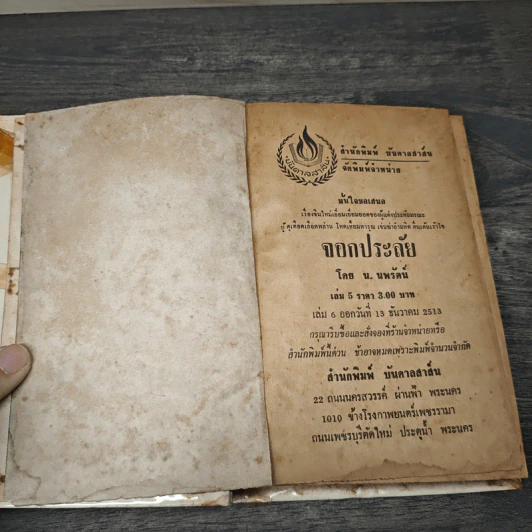 สำนักพิมพ์ บันดาลสาส์น
จัดพิมพ์จำหน่าย
บันดาลสาส์น
มั่นใจขอเสนอ
เรื่องจีนใหม่เยี่ยมเยี่ยมยอดของผู้แต่งประทับมรณะ
จอกประลัย
โดย น. นพรัตน์
เล่ม 5 ราคา 3.00 บาท
เล่ม 6 ออกวันที่ 13 ธันวาคม 2513
กรุณารีบซื้อและสั่งจองที่ร้านจำหน่ายหรือ
สำนักพิมพ์นี้ด่วน ช้าอาจหมดเพราะพิมพ์จำนวนจำกัด
สำนักพิมพ์ บันดาลสาส์น
22 ถนนนครสวรรค์ ผ่านฟ้า พระนคร
1010 ข้างโรงภาพยนตร์เพชรรามา
ถนนเพชรบุรีตัดใหม่ ประตูน้ำ พระนคร